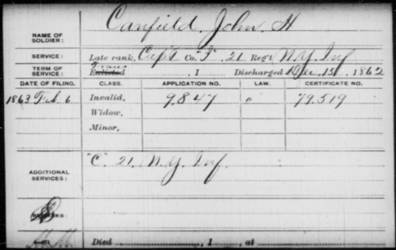 NAME OF SOLDIER: Canfield, John H
SERVICE: Late rank, Capt Co. F, 21 Reg't N.Y. Inf
TERM OF SERVICE: Enlisted , 1 Discharged Dec. 15, 1862
DATE OF FILING. CLASS. APPLICATION NO. LAW. CERTIFICATE NO.
1863 Feb. 6 Invalid, 9847 79.519
Widow,
Minor,
ADDITIONAL SERVICES: "C" 21 N.Y. Inf.
REMARKS:
Died , 1 , at